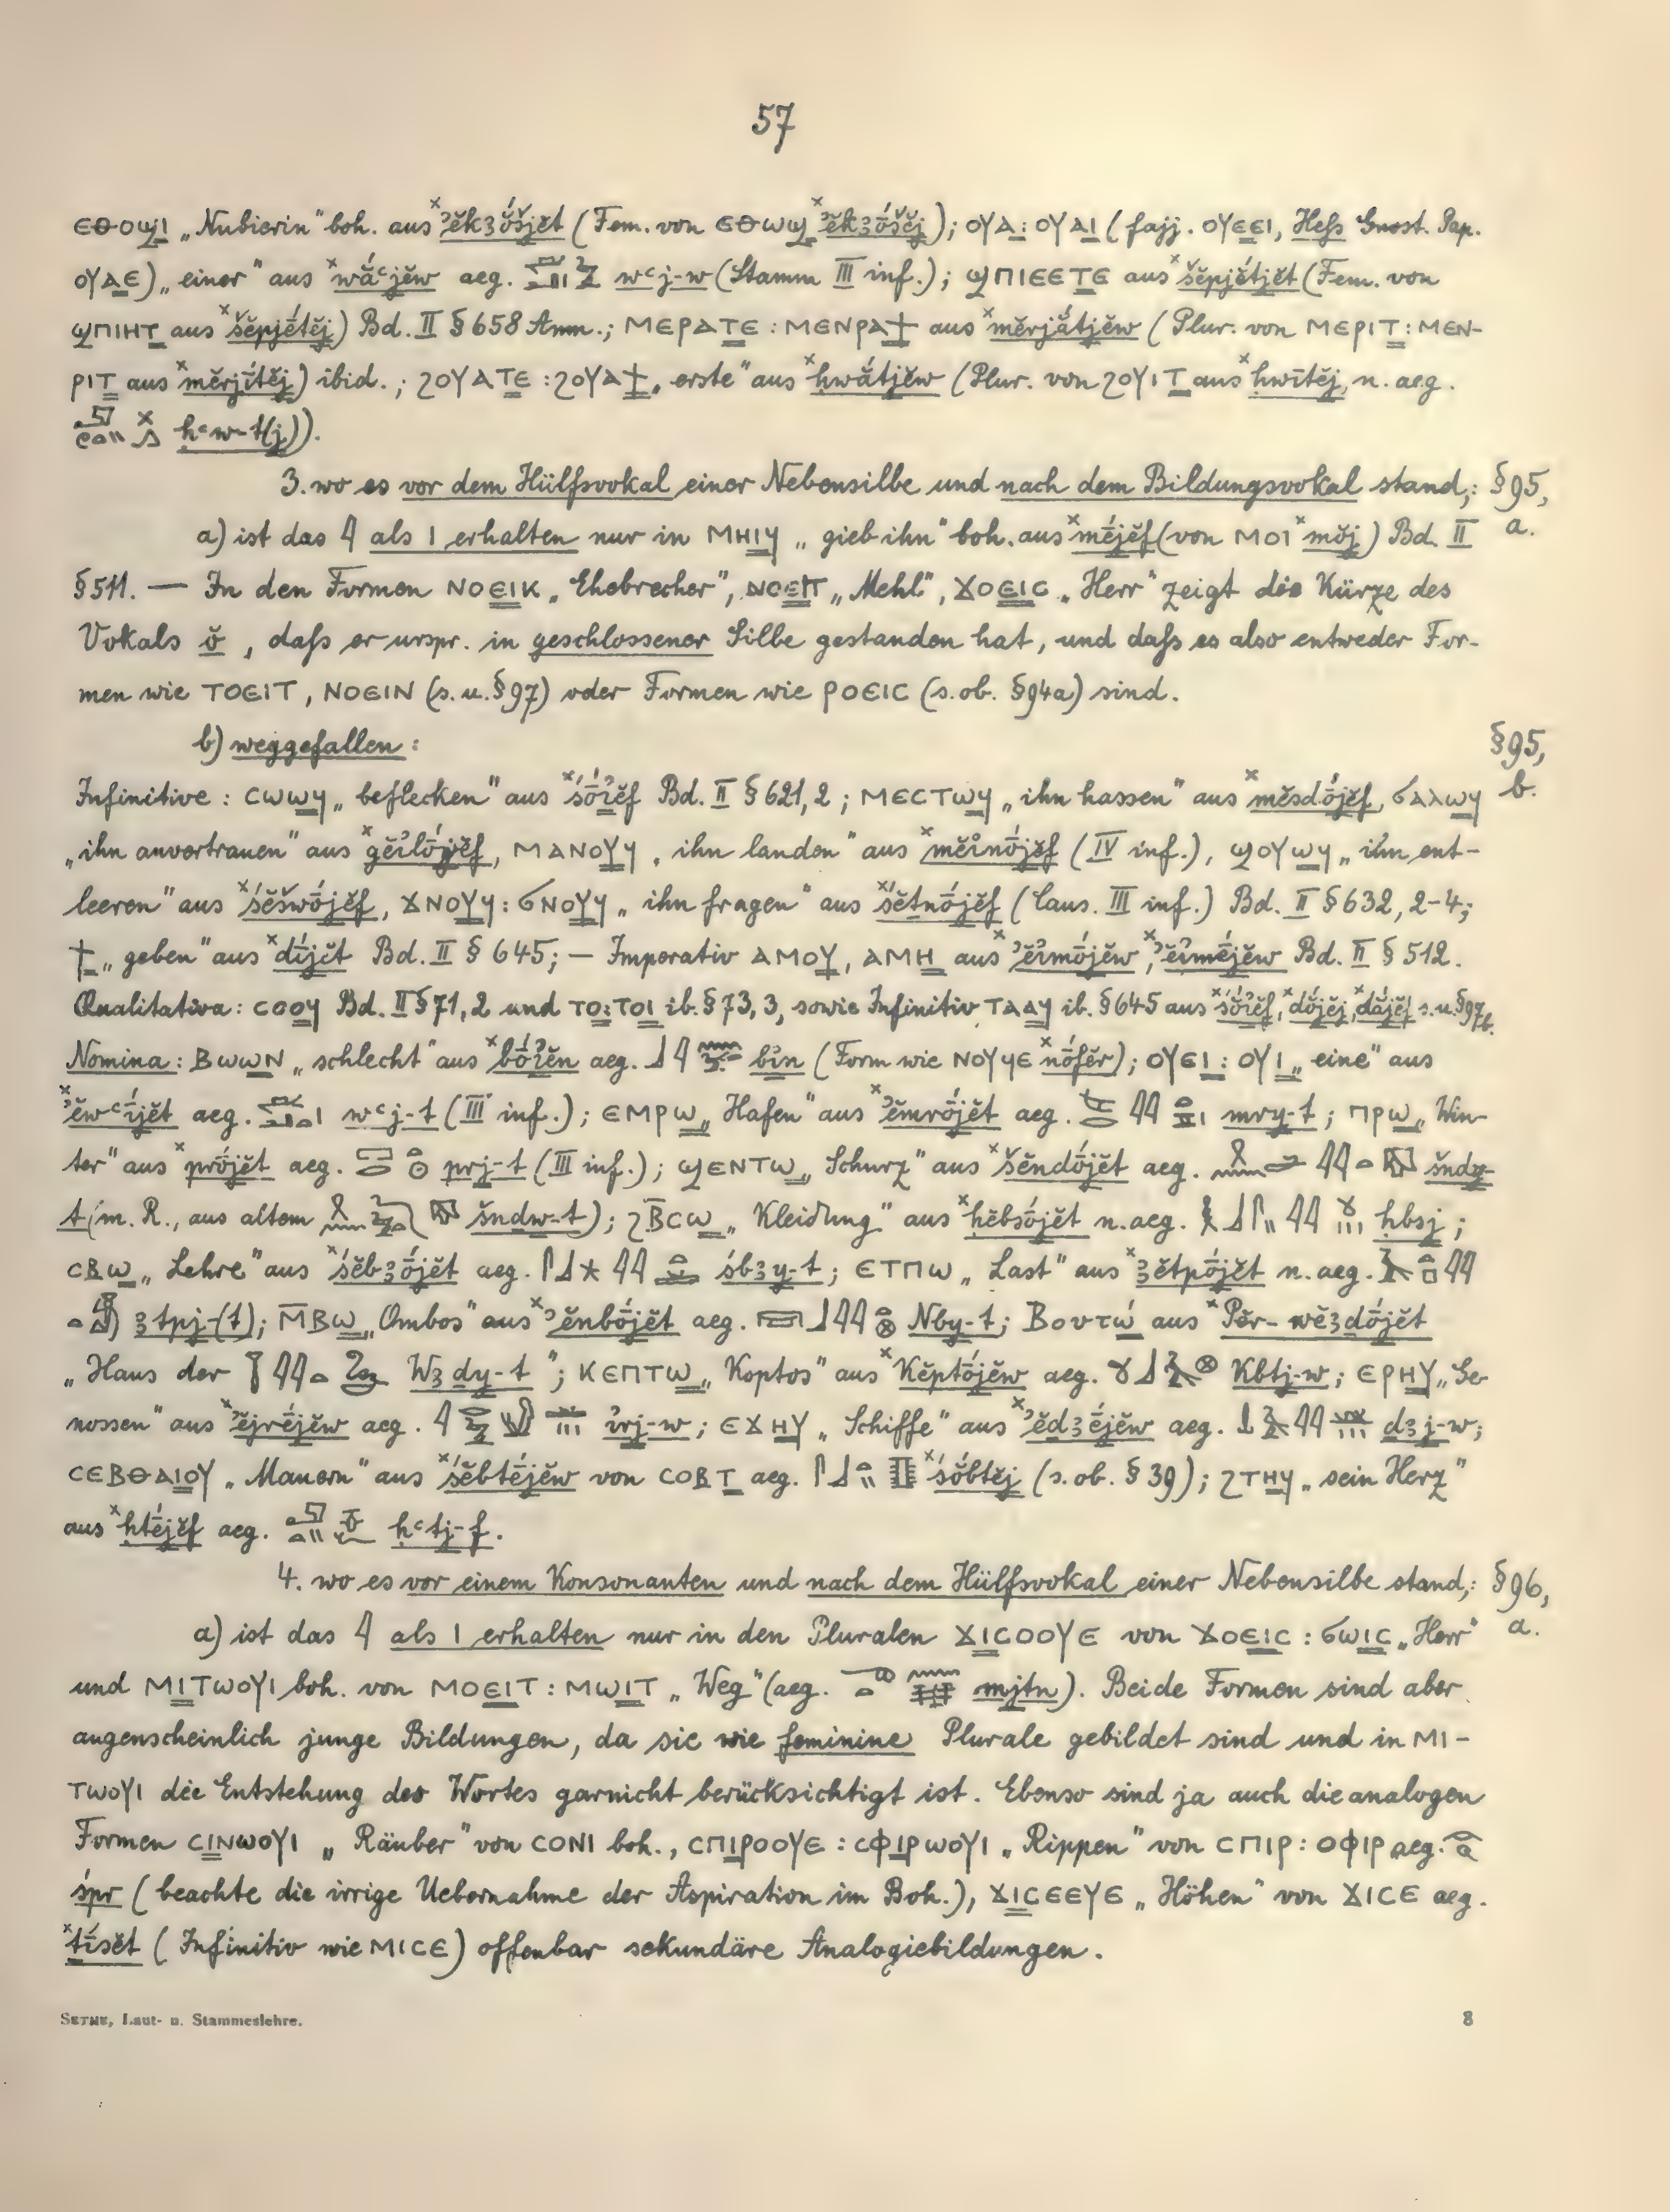 57
ⲉⲑⲟϣⲓ „Nubierin" boh. aus ˣʾĕkꜣṓšjĕt (Fem. von ⲉⲑⲱϣ ˣʾĕkꜣṓšĕj); ⲟⲩⲁ : ⲟⲩⲁⲓ (fajj. ⲟⲩⲉⲉⲓ, Heſs Gnost. Pap.
ⲟⲩⲁⲉ) „einer" aus ˣwăʿjĕw aeg. wʿj-w (Stamm III inf.); ϣⲡⲓⲉⲉⲧⲉ aus ˣšĕpjĕ́tjĕt (Fem. von
ϣⲡⲓⲏⲧ aus ˣšĕpjḗtĕj) Bd. II § 658 Anm.; ⲙⲉⲣⲁⲧⲉ : ⲙⲉⲛⲣⲁϯ aus ˣmĕrjắtjĕw (Plur. von ⲙⲉⲣⲓⲧ : ⲙⲉⲛ-
ⲣⲓⲧ aus ˣmĕrjī́tĕj) ibid.; ϩⲟⲩⲁⲧⲉ : ϩⲟⲩⲁϯ „erste" aus ˣḥwắtjĕw (Plur. von ϩⲟⲩⲓⲧ aus ˣḥwī́tĕj, n. aeg.
ḥʿw-t(j)).
3. wo es vor dem Hülfsvokal einer Nebensilbe und nach dem Bildungsvokal stand,: §95,
a) ist das 𓇋 als ⲓ erhalten nur in ⲙⲏⲓϥ „gieb ihn" boh. aus ˣmḗjĕf (von ⲙⲟⲓ ˣmŏj) Bd. II a.
§ 511. — In den Formen ⲛⲟⲉⲓⲕ „Ehebrecher", ⲛⲟⲉⲓⲧ „Mehl", ϫⲟⲉⲓⲥ „Herr" zeigt die Kürze des
Vokals ŏ, daſs er urspr. in geschlossener Silbe gestanden hat, und daſs es also entweder For-
men wie ⲧⲟⲉⲓⲧ, ⲛⲟⲉⲓⲛ (s. u. § 97) oder Formen wie ⲣⲟⲉⲓⲥ (s. ob. § 94a) sind.
b) weggefallen: §95,
Infinitive: ⲥⲱⲱϥ „beflecken" aus ˣśṓꞽĕf Bd. II § 621,2; ⲙⲉⲥⲧⲱϥ „ihn hassen" aus ˣmĕsdṓjĕf, ϭⲁⲗⲱϥ b.
„ihn anvertrauen" aus ˣgĕꞽlṓjĕf, ⲙⲁⲛⲟⲩϥ „ihn landen" aus ˣmĕꞽnṓjĕf (IV inf.), ϣⲟⲩⲱϥ „ihn ent-
leeren" aus ˣśĕšwṓjĕf, ϫⲛⲟⲩϥ : ϭⲛⲟⲩϥ „ihn fragen" aus ˣśĕtnṓjĕf (Caus. III inf.) Bd. II § 632, 2-4;
ϯ „geben" aus ˣdī́jĕt Bd. II § 645; — Imperativ ⲁⲙⲟⲩ, ⲁⲙⲏ aus ˣʾĕꞽmṓjĕw, ˣʾĕꞽmḗjĕw Bd. II § 512.
Qualitativa: ⲥⲟⲟϥ Bd. II § 71,2 und ⲧⲟ : ⲧⲟⲓ ib. § 73, 3, sowie Infinitiv ⲧⲁⲁϥ ib. § 645 aus ˣśŏ́ꞽĕf, ˣdŏ́jĕj, ˣdắjĕf s. u. § 97b.
Nomina: ⲃⲱⲱⲛ „schlecht" aus ˣbṓꞽĕn aeg. bꞽn (Form wie ⲛⲟⲩϥⲉ ˣnṓfĕr); ⲟⲩⲉⲓ : ⲟⲩⲓ „eine" aus
ˣʾĕwʿī́jĕt aeg. wʿj-t (III inf.); ⲉⲙⲣⲱ „Hafen" aus ˣʾĕmrṓjĕt aeg. mry-t; ⲡⲣⲱ „Win-
ter" aus ˣprṓjĕt aeg. prj-t (III inf.); ϣⲉⲛⲧⲱ „Schurz" aus ˣšĕndṓjĕt aeg. šndy-
t (m. R., aus altem šndw-t); ϩⲃ̄ⲥⲱ „Kleidung" aus ˣḥĕbsṓjĕt n. aeg. ḥbsj;
ⲥⲃⲱ „Lehre" aus ˣśĕbꜣṓjĕt aeg. śbꜣy-t; ⲉⲧⲡⲱ „Last" aus ˣꜣĕtpṓjĕt n. aeg.
ꜣtpj-(t); ⲙ̄ⲃⲱ „Ombos" aus ˣʾĕnbṓjĕt aeg. Nby-t; Βουτώ aus ˣPĕr-wĕꜣdṓjĕt
„Haus der Wꜣḏy-t"; ⲕⲉⲡⲧⲱ „Koptos" aus ˣKĕptṓjĕw aeg. Kbtj-w; ⲉⲣⲏⲩ „Ge-
nossen" aus ˣʾĕjrḗjĕw aeg. ꞽrj-w; ⲉϫⲏⲩ „Schiffe" aus ˣʾĕḏꜣḗjĕw aeg. ḏꜣj-w;
ⲥⲉⲃⲑⲁⲓⲟⲩ „Mauern" aus ˣśĕbtḗjĕw von ⲥⲟⲃⲧ aeg. ˣśŏ́btĕj (s. ob. § 39); ϩⲧⲏϥ „sein Herz"
aus ˣḥtḗjĕf aeg. ḥʿtj-f.
4. wo es vor einem Konsonanten und nach dem Hülfsvokal einer Nebensilbe stand,: §96,
a) ist das 𓇋 als ⲓ erhalten nur in den Pluralen ϫⲓⲥⲟⲟⲩⲉ von ϫⲟⲉⲓⲥ : ϭⲱⲓⲥ „Herr" a.
und ⲙⲓⲧⲱⲟⲩⲓ boh. von ⲙⲟⲉⲓⲧ : ⲙⲱⲓⲧ „Weg" (aeg. mjtn). Beide Formen sind aber
augenscheinlich junge Bildungen, da sie wie feminine Plurale gebildet sind und in ⲙⲓ-
ⲧⲱⲟⲩⲓ die Entstehung des Wortes garnicht berücksichtigt ist. Ebenso sind ja auch die analogen
Formen ⲥⲓⲛⲱⲟⲩⲓ „Räuber" von ⲥⲟⲛⲓ boh., ⲥⲡⲓⲣⲟⲟⲩⲉ : ⲥⲫⲓⲣⲱⲟⲩⲓ „Rippen" von ⲥⲡⲓⲣ : ⲟⲫⲓⲣ aeg.
śpr (beachte die irrige Uebernahme der Aspiration im Boh.), ϫⲓⲥⲉⲉⲩⲉ „Höhen" von ϫⲓⲥⲉ aeg.
ˣṯī́sĕt (Infinitiv wie ⲙⲓⲥⲉ) offenbar sekundäre Analogiebildungen.
SETHE, Laut- u. Stammeslehre. 8